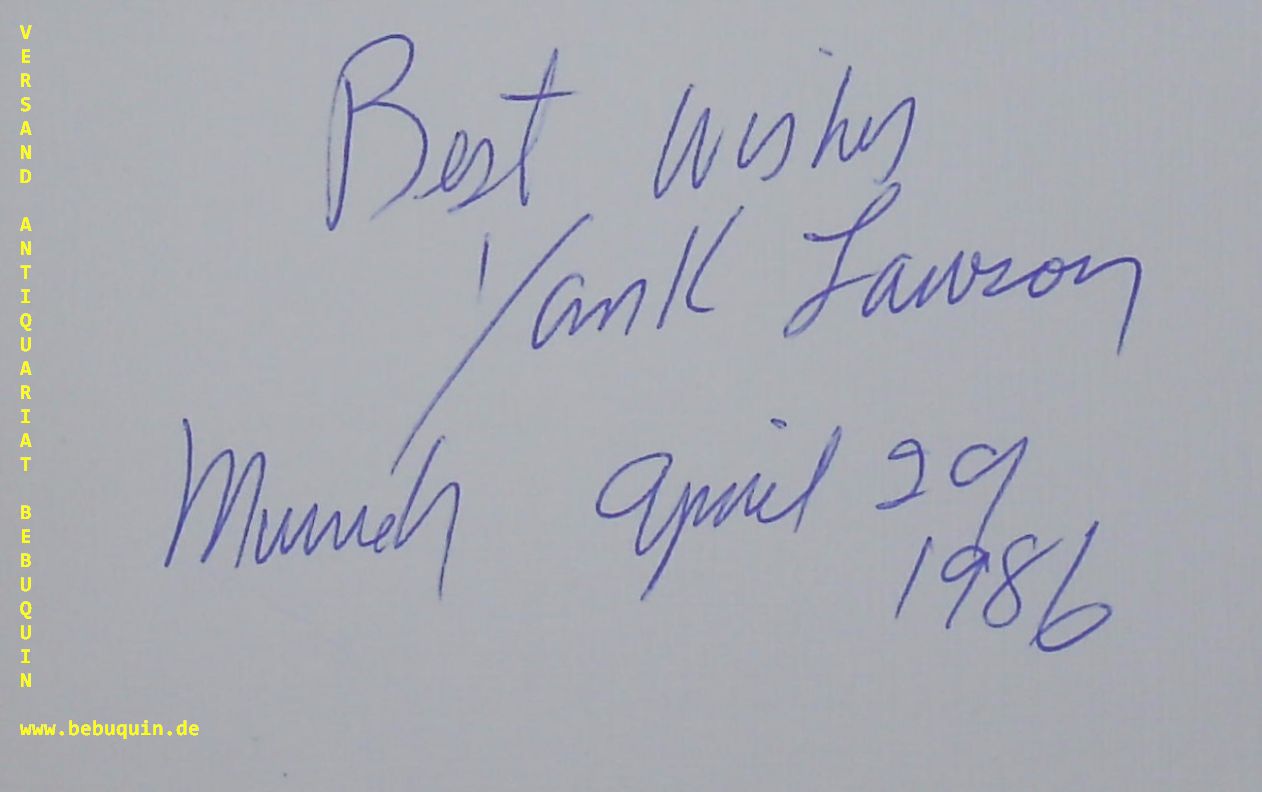 Best wishes
Yank Lawson
Munich April 29
1986
VERSAND ANTIQUARIAT BEBUQUIN
www.bebuquin.de